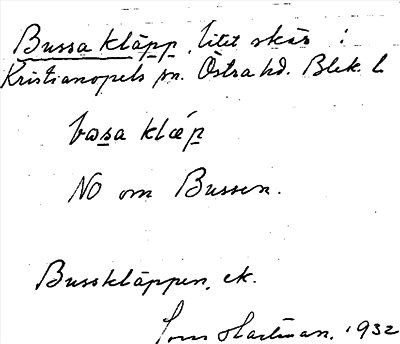 Bussa kläpp, litet skär i
Kristianopels sn. Östra hd. Blek. l.
bɷsa klæp
NO om Bussen.
Busskläppen, ek.
Hartman, 1932